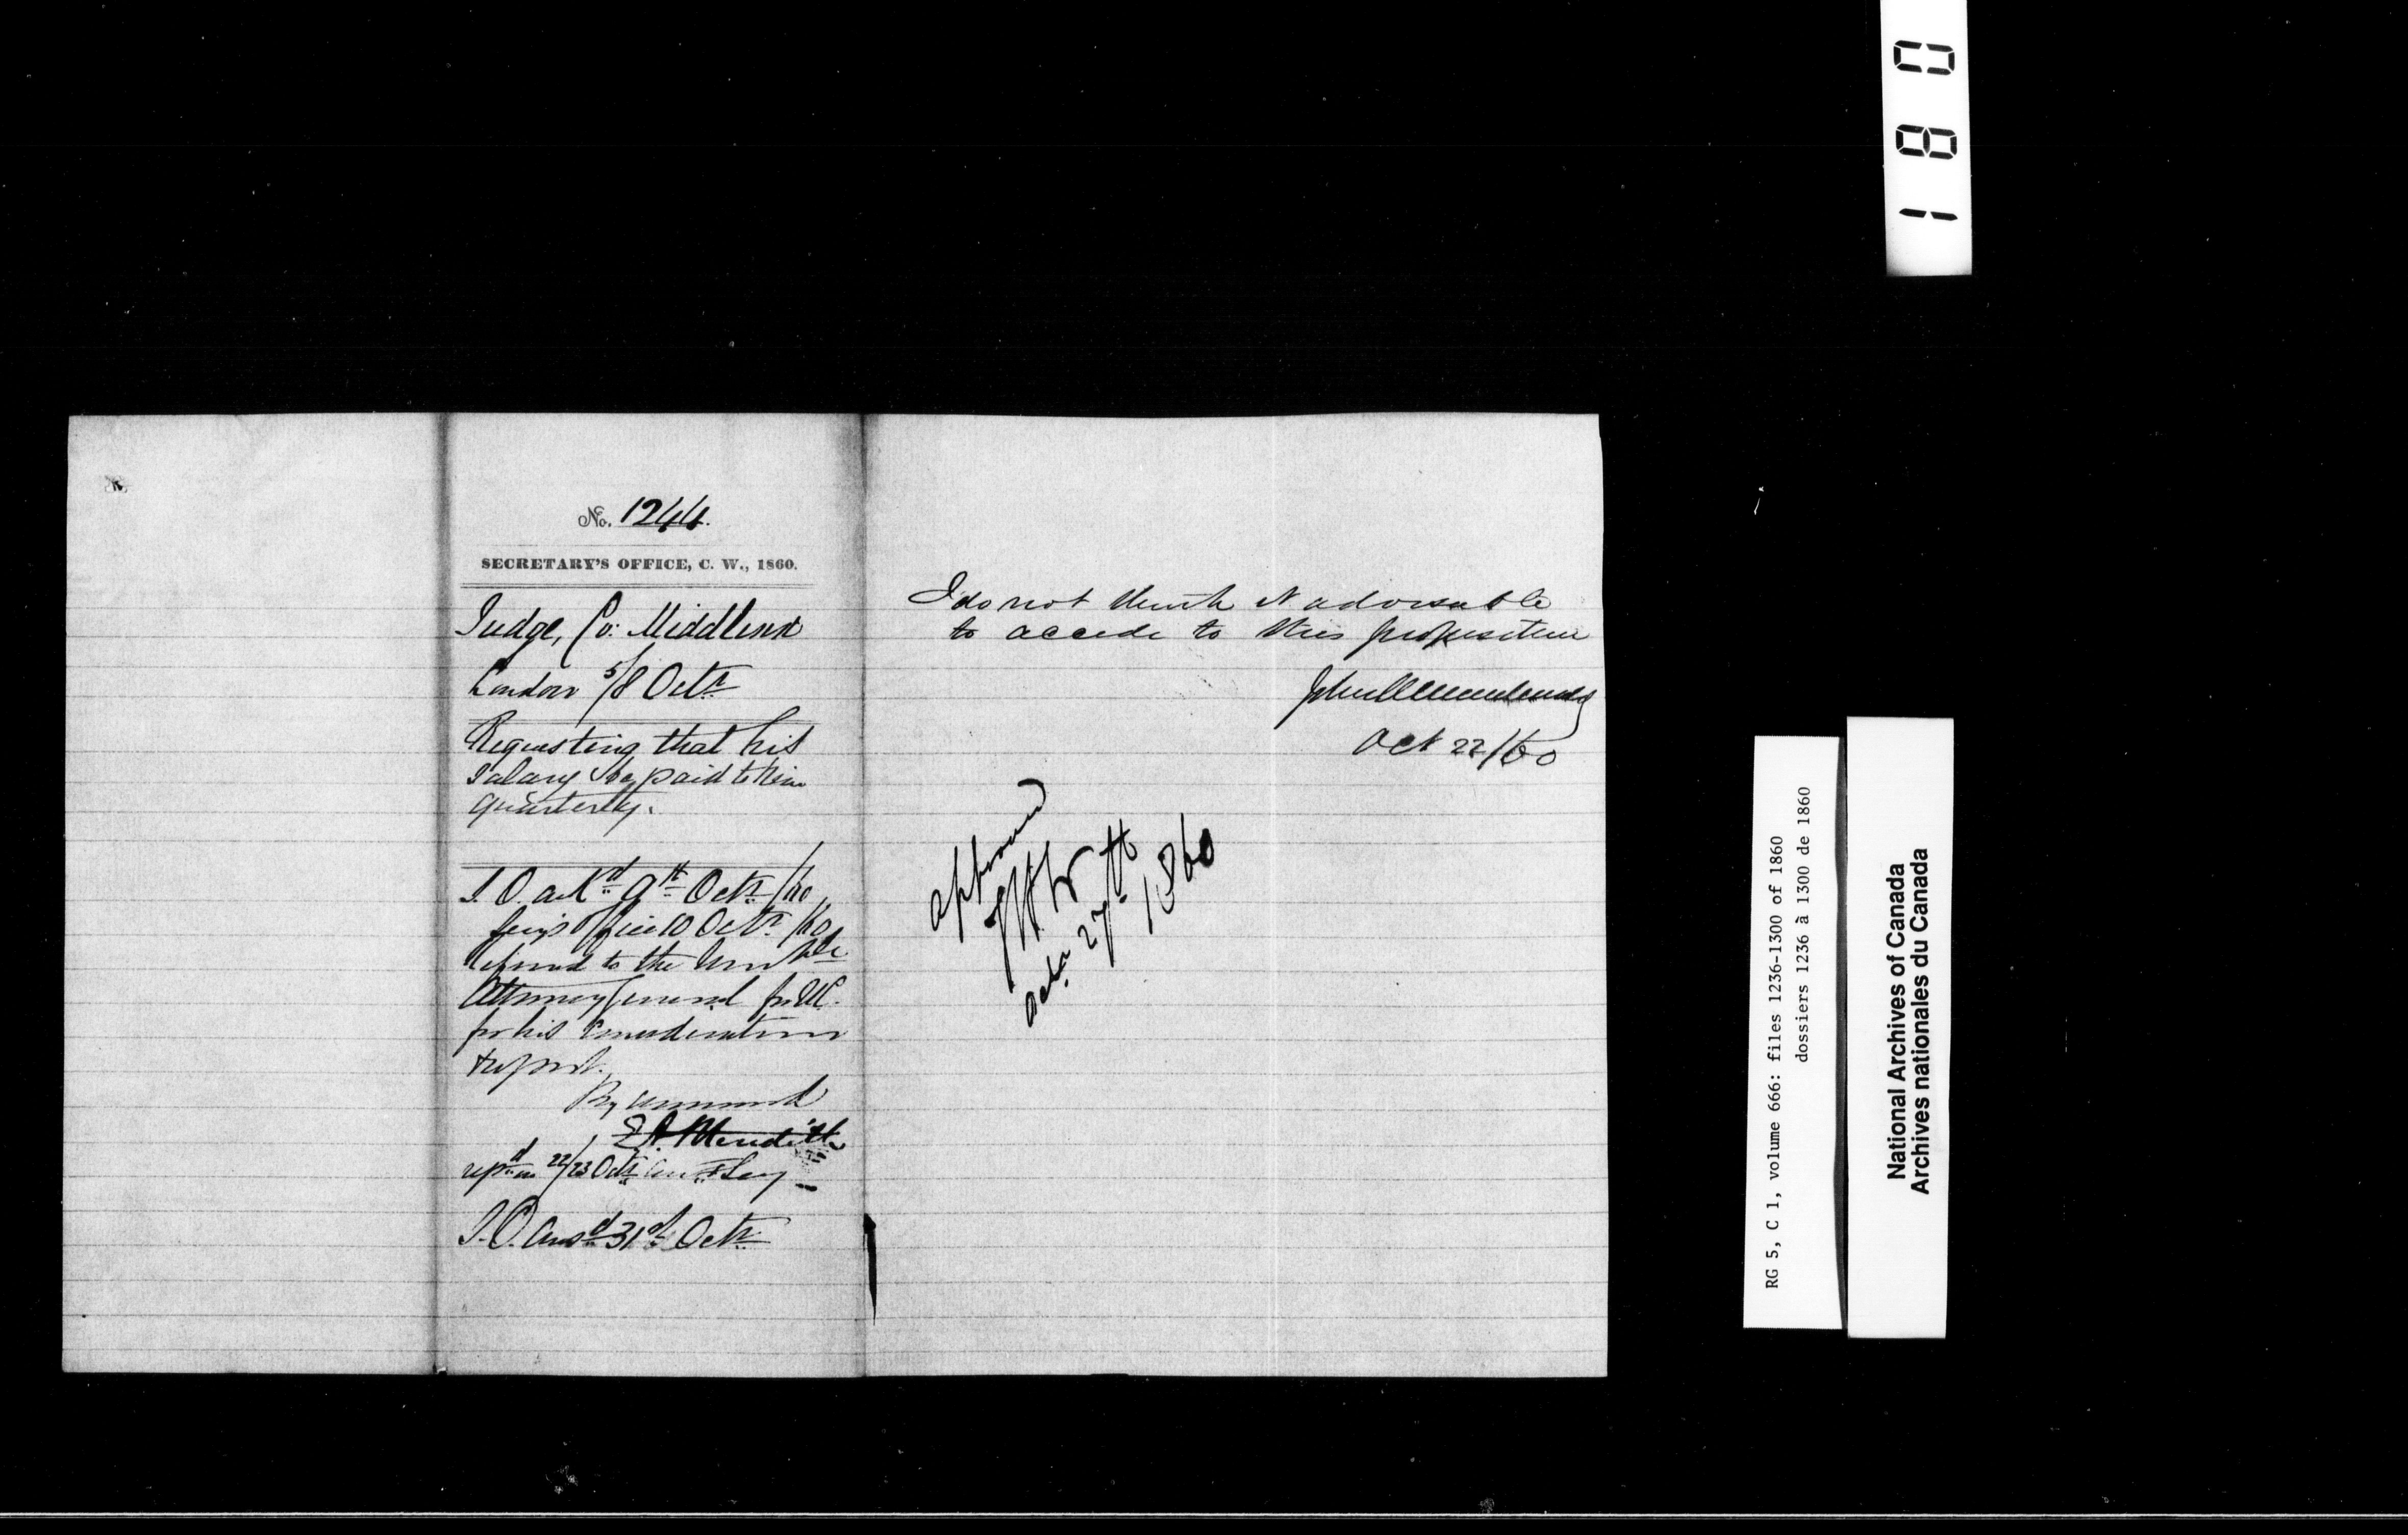 180
No. 1244.
SECRETARY'S OFFICE, C. W., 1860.
Judge, Co: Middlesex
London 5/8 Octr
Requesting that his
Salary be paid to him
quarterly.
I. O. ackd 9th Octr /60
Secy's Office 10 Octr /60
Referred to the Honble
Attorney General for U.C.
for his consideration
& report.
By command
E A Meredith
repd on 22/23 Octr
I. O. ansd 31st Octr
I do not think it advisable
to accede to this proposition
John A Macdonald
Oct 22/60
approved
Octr 27th
1860
RG 5, C 1, volume 666: files 1236-1300 of 1860
dossiers 1236 à 1300 de 1860
National Archives of Canada
Archives nationales du Canada